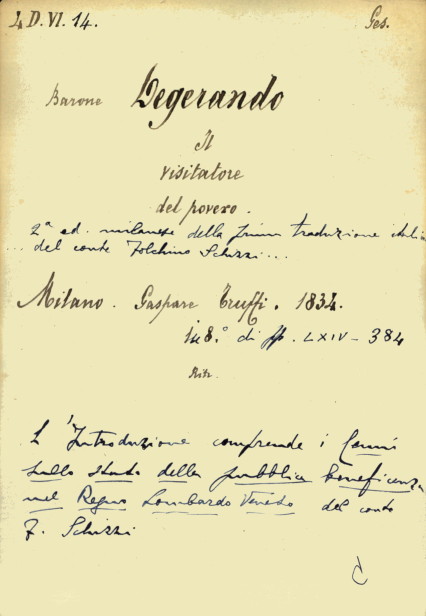 4 D. VI. 14. Ges.
Barone Degerando
Il
visitatore
del povero.
2ª ed. milanese della prima traduzione itali
... del conte Folchino Schizzi ...
Milano. Gaspare Truffi. 1834.
in 8.° di pp. LXIV - 384
Ritr.
L'Introduzione comprende i Cenni
sullo stato della pubblica beneficenza
nel Regno Lombardo Veneto del conte
F. Schizzi
C